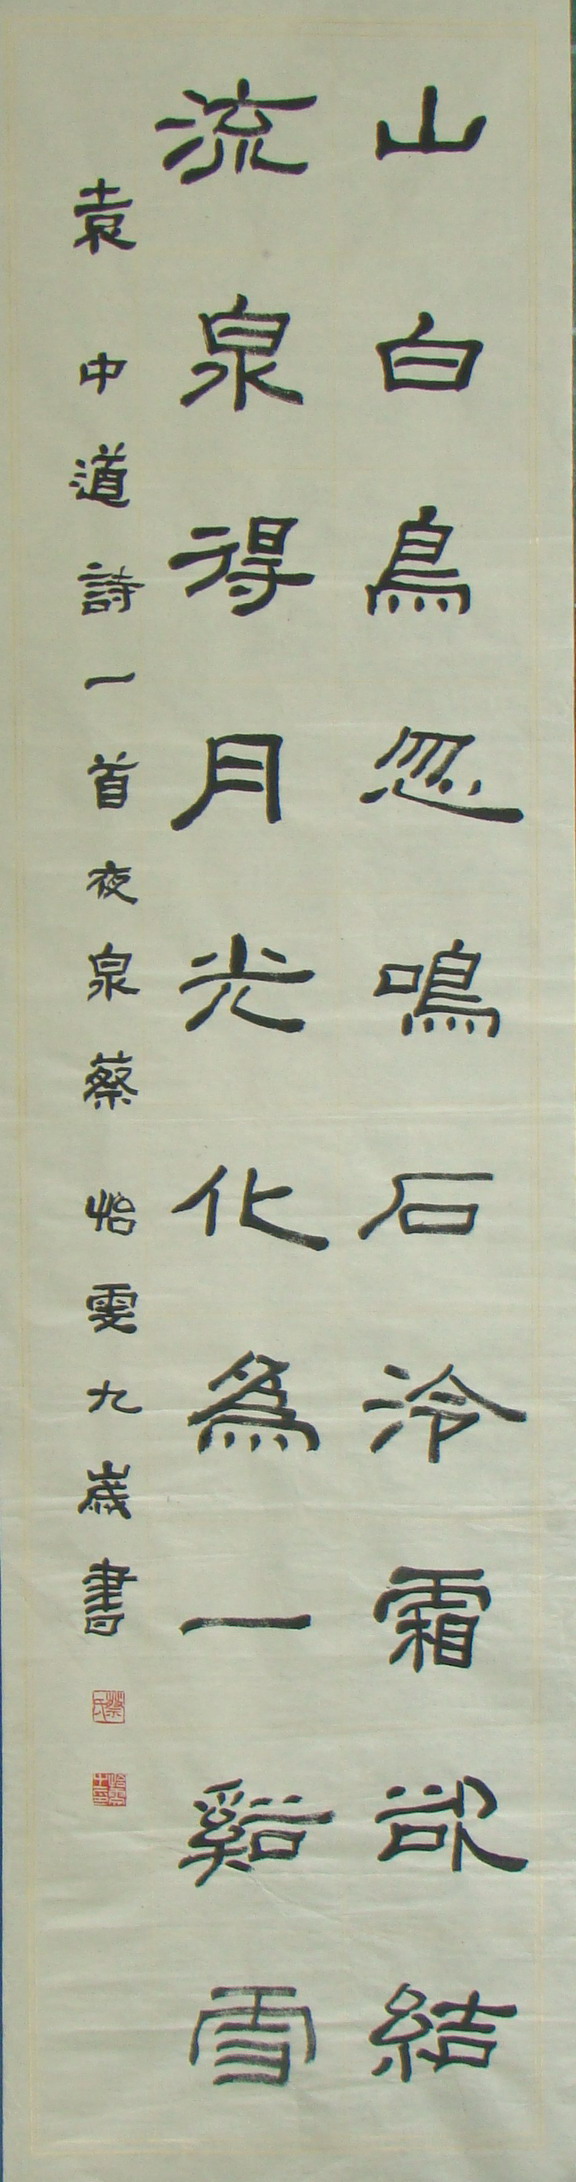 山白鳥忽鳴石泠霜欲結
流泉得月光化為一谿雪
袁中道詩一首夜泉蔡怡雯九歲書